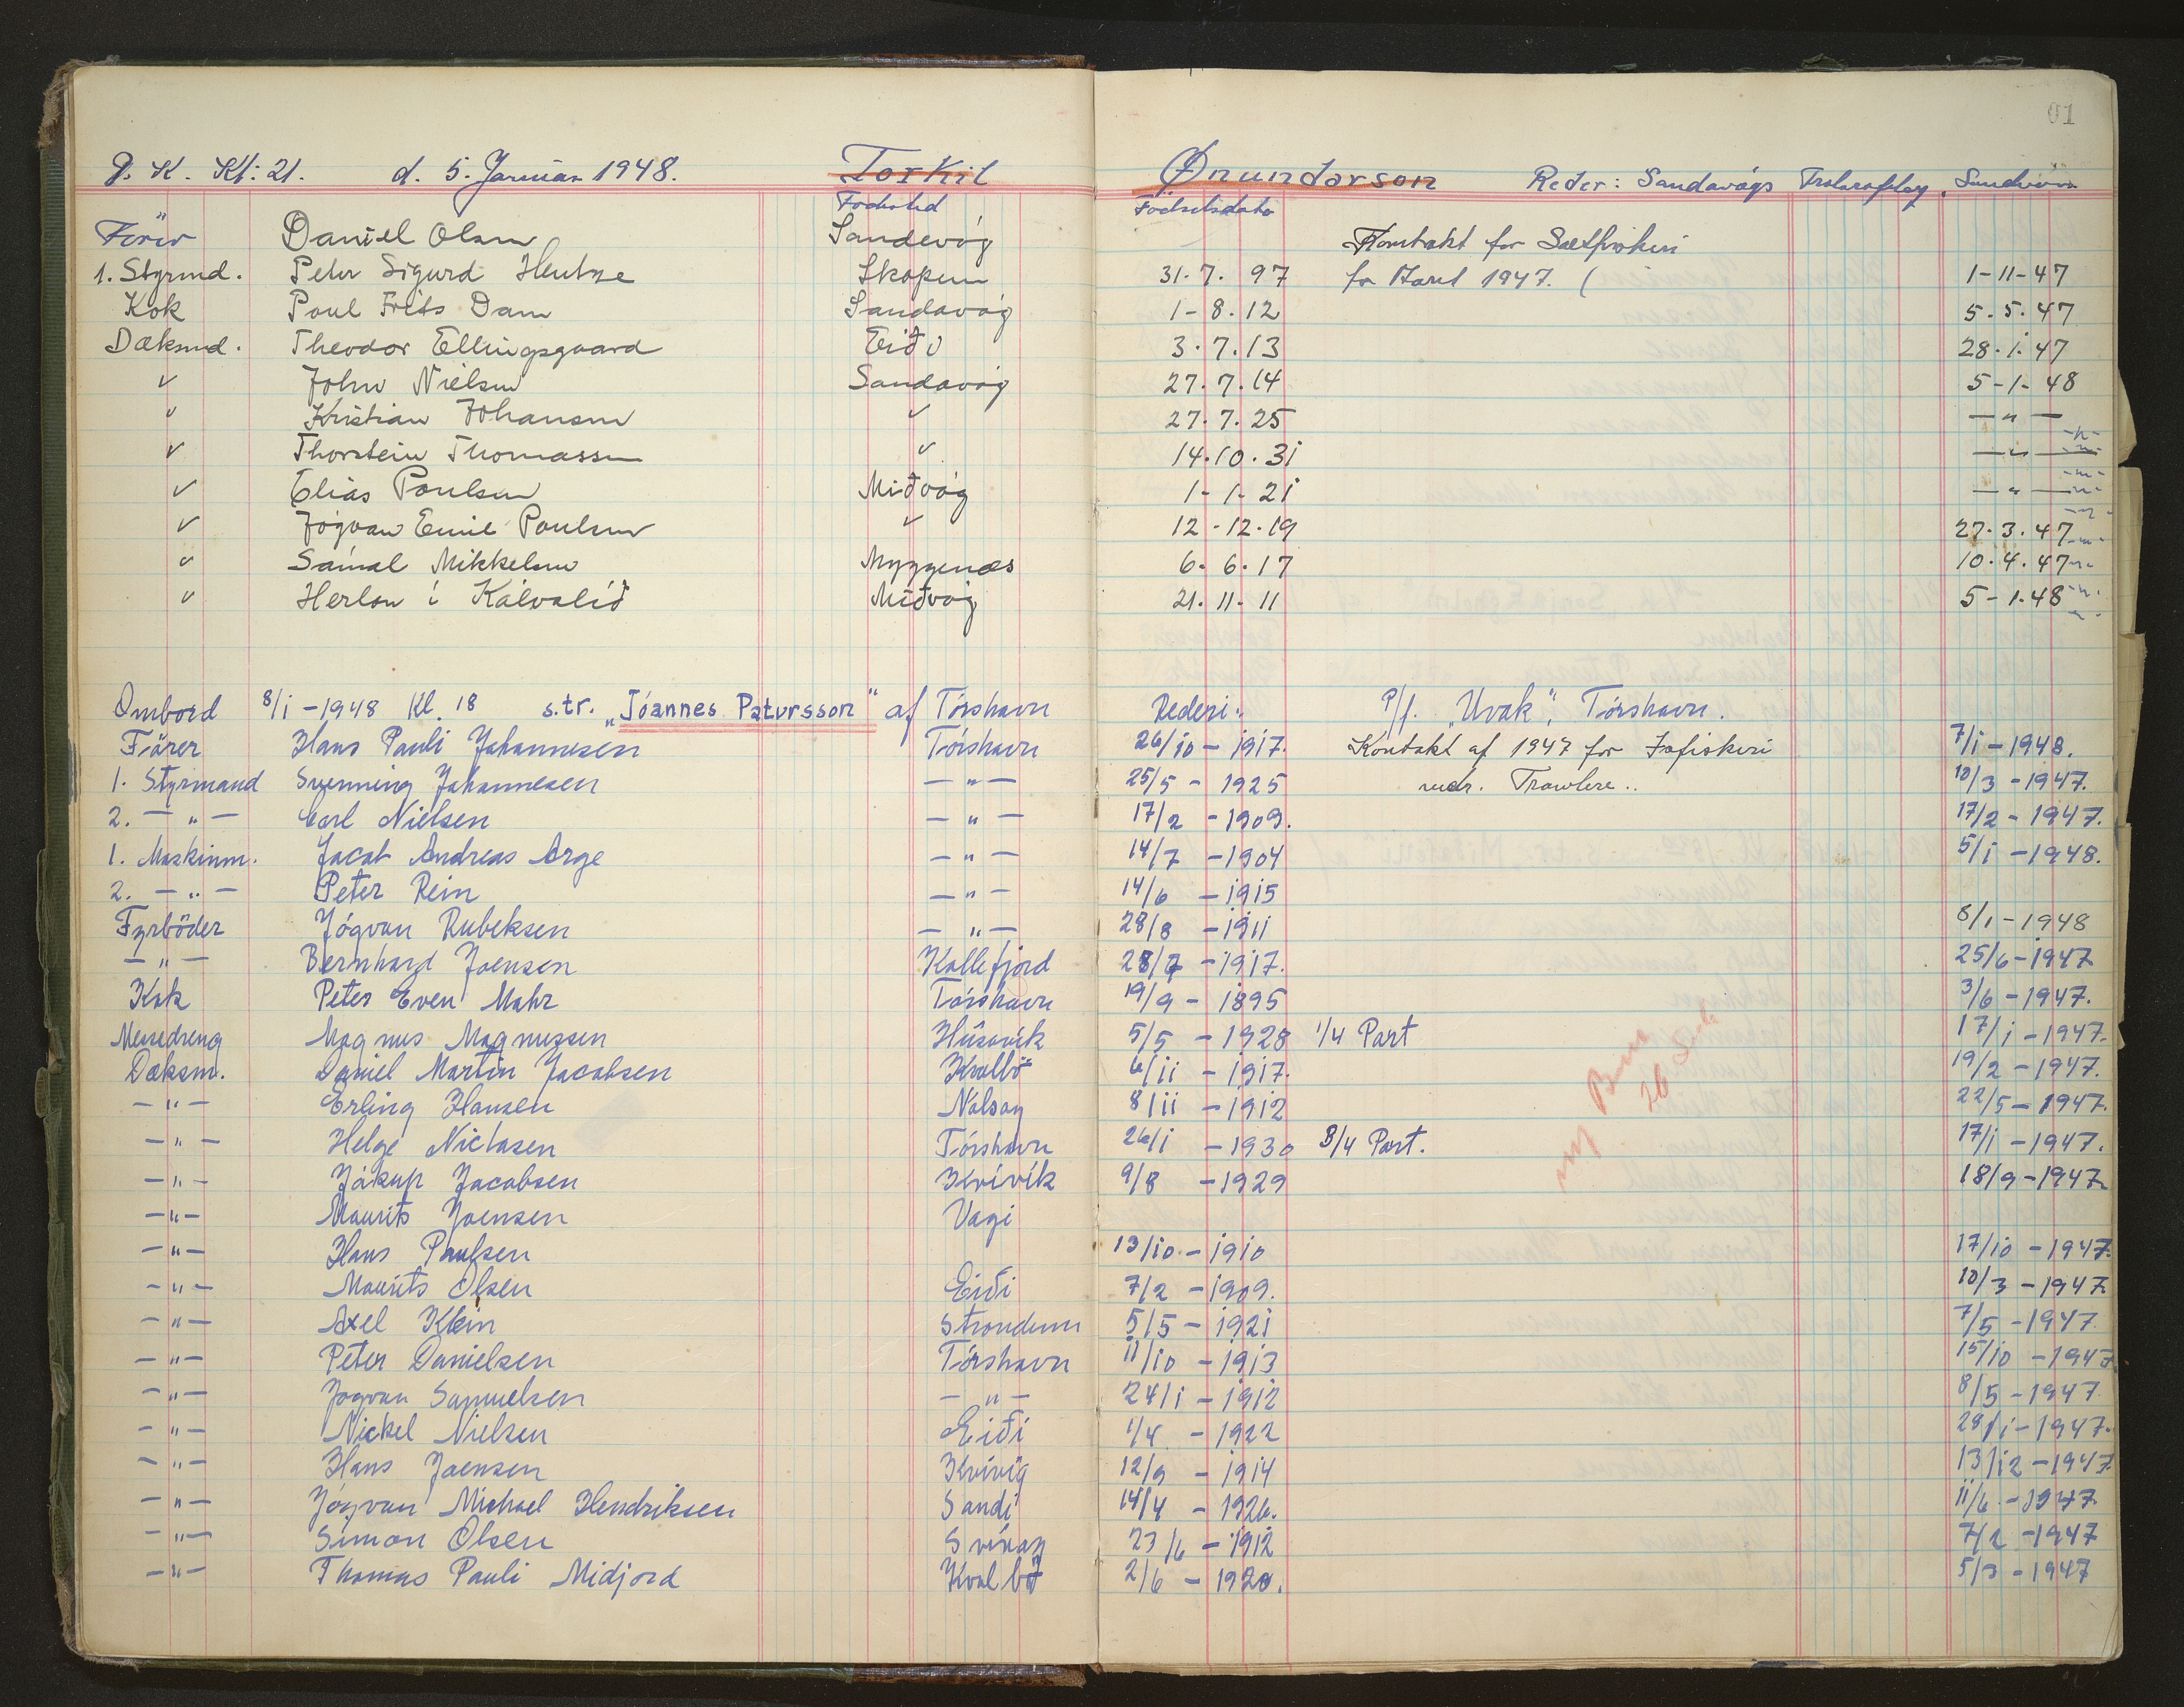 01
d. 5. Januar 1948. Torkil Ønundarson Reder: Sandavágs
Fødested Fødselsdato
Fører Daniel Olsen Sandevág Kontrakt for Saltfiskeri
1. Styrmd. Peter Sigurd Hentze Skopun 31. 7. 97 for 1947. ( 1-11-47
Kok Poul Frits Dam Sandavág 1-8.12 5.5.47
Dæksmd. Theodor Ellingsgaard 3.7.13 28.1.47
" John Nielsen Sandavág 27.7.14 5-1-48
" Kristian Johansen " 27.7.25 — " —
" Thorstein Thomassen " 14.10.31 — " —
" Elias Poulsen Miðvág 1-1-21 — " —
" Jógvan Emil Poulsen " 12-12-19 27.3.47
" Sámal Mikkelsen Myggenæs 6.6.17 10.4.47
" Herlon í Kálvalíð Miðvág 21.11.11 5-1.48
Ombord 8/1-1948 Kl. 18 s.tr. „Jóannes Patursson" af Tórshavn Rederi: P/f. „Uvak", Tórshavn.
Fører Hans Pauli Johannesen Tórshavn 26/10-1917. Kontakt af 1947 for Isfiskeri 7/1-1948.
1. Styrmand Svenning Johannesen — " — 25/5 - 1925 Trawlere.. 10/3-1947.
2. — " — Carl Nielsen — " — 17/2 - 1909. 17/2-1947.
1. Maskinm. Jacob Andreas Arge — " — 14/7 - 1904 5/1-1948.
2. — " — Peter Rein — " — 14/6 - 1915
Fyrböder Jógvan Rubeksen — " — 28/8 - 1911 8/1-1948
— " — Bernhard Joensen Kollefjord 28/7 - 1917. 25/6-1947
Kok Peter Even Mohr Tórshavn 19/9 - 1895 3/6-1947.
Messedreng Magnus Magnussen Húsavík 5/5 - 1928 1/4 Part 17/1-1947.
Dæksm. Daniel Martin Jacobsen Kvalbö 6/11 - 1917. 19/2-1947.
— " — Erling Hansen Nolsoy 8/11 - 1912 22/5-1947.
— " — Helge Niclasen Tórshavn 26/1 - 1930 3/4 Part. 17/1-1947.
— " — Jákup Jacobsen Kvívík 9/8 - 1929 18/9-1947
— " — Maurits Joensen Vagi
— " — Hans Poulsen 13/10 - 1910 17/10-1947.
— " — Maurits Olsen Eiði 7/2 - 1909. 10/3-1947
— " — Axel Klein Strondum 5/5 - 1921 7/5-1947
— " — Peter Danielsen Tórshavn 11/10 - 1913 15/10-1947
— " — Jogvan Samuelsen — " — 24/1 - 1912 8/5-1947
— " — Nickel Nielsen Eiði 1/4 - 1922 28/1-1947.
— " — Hans Joensen Kvívig 12/9 - 1914 13/12-1947
— " — Jógvan Michael Hendriksen Sandi 14/4 - 1926. 11/6-1947
— " — Simon Olsen Svínoy 23/6 - 1912 7/2-1947
— " — Thomas Pauli Midjord Kvalbø 2/6 - 1920. 5/3-1947